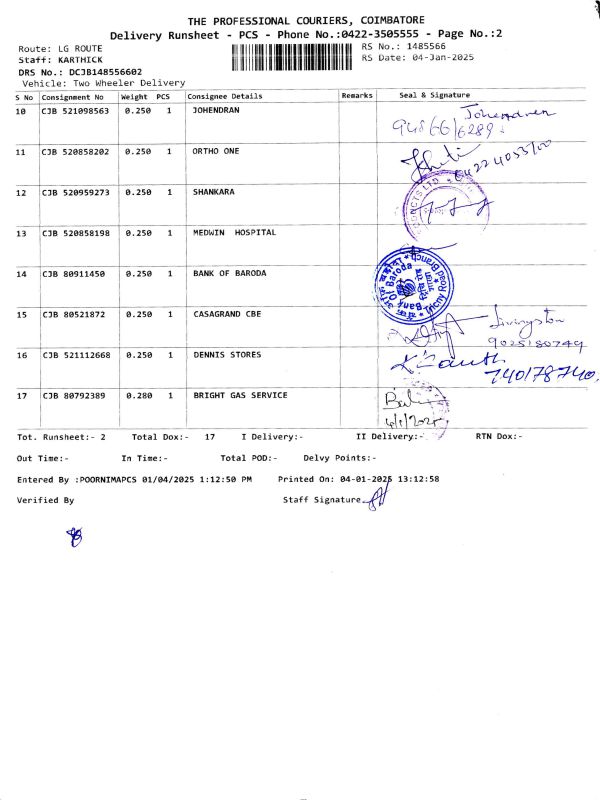 THE PROFESSIONAL COURIERS, COIMBATORE
Delivery Runsheet - PCS - Phone No.:0422-3505555 - Page No.:2
Route: LG ROUTE RS No.: 1485566
Staff: KARTHICK RS Date: 04-Jan-2025
DRS No.: DCJB148556602
Vehicle: Two Wheeler Delivery
S No Consignment No Weight PCS Consignee Details Remarks Seal & Signature
10 CJB 521098563 0.250 1 JOHENDRAN Johendren
94866/6289
11 CJB 520858202 0.250 1 ORTHO ONE
12 CJB 520959273 0.250 1 SHANKARA
13 CJB 520858198 0.250 1 MEDWIN HOSPITAL
14 CJB 80911450 0.250 1 BANK OF BARODA Bank Of Baroda
Trichy Road Branch
15 CJB 80521872 0.250 1 CASAGRAND CBE Livingston
9025180744
16 CJB 521112668 0.250 1 DENNIS STORES
740178740
17 CJB 80792389 0.280 1 BRIGHT GAS SERVICE
4/1/2025
Tot. Runsheet:- 2 Total Dox:- 17 I Delivery:- II Delivery:- RTN Dox:-
Out Time:- In Time:- Total POD:- Delvy Points:-
Entered By :POORNIMAPCS 01/04/2025 1:12:50 PM Printed On: 04-01-2025 13:12:58
Verified By Staff Signature